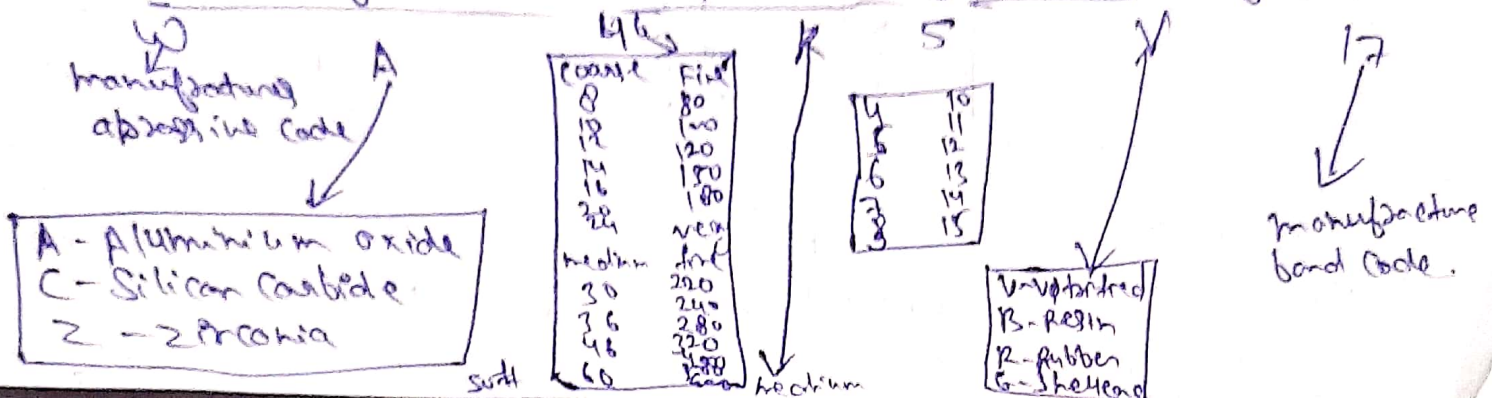 W A 46 K 5 V 17
manufactures
abrassive code
A - Aluminium oxide
C - Silicon Carbide
Z - Zirconia
coarse Fine
8 80
12 120
14 150
16 180
24 very
medium fine
30 220
36 240
46 280
60 320
soft
medium
4 10
5 11
6 12
7 13
8 14
15
V - Vitrified
B - Resin
R - Rubber
manufacture
bond code.